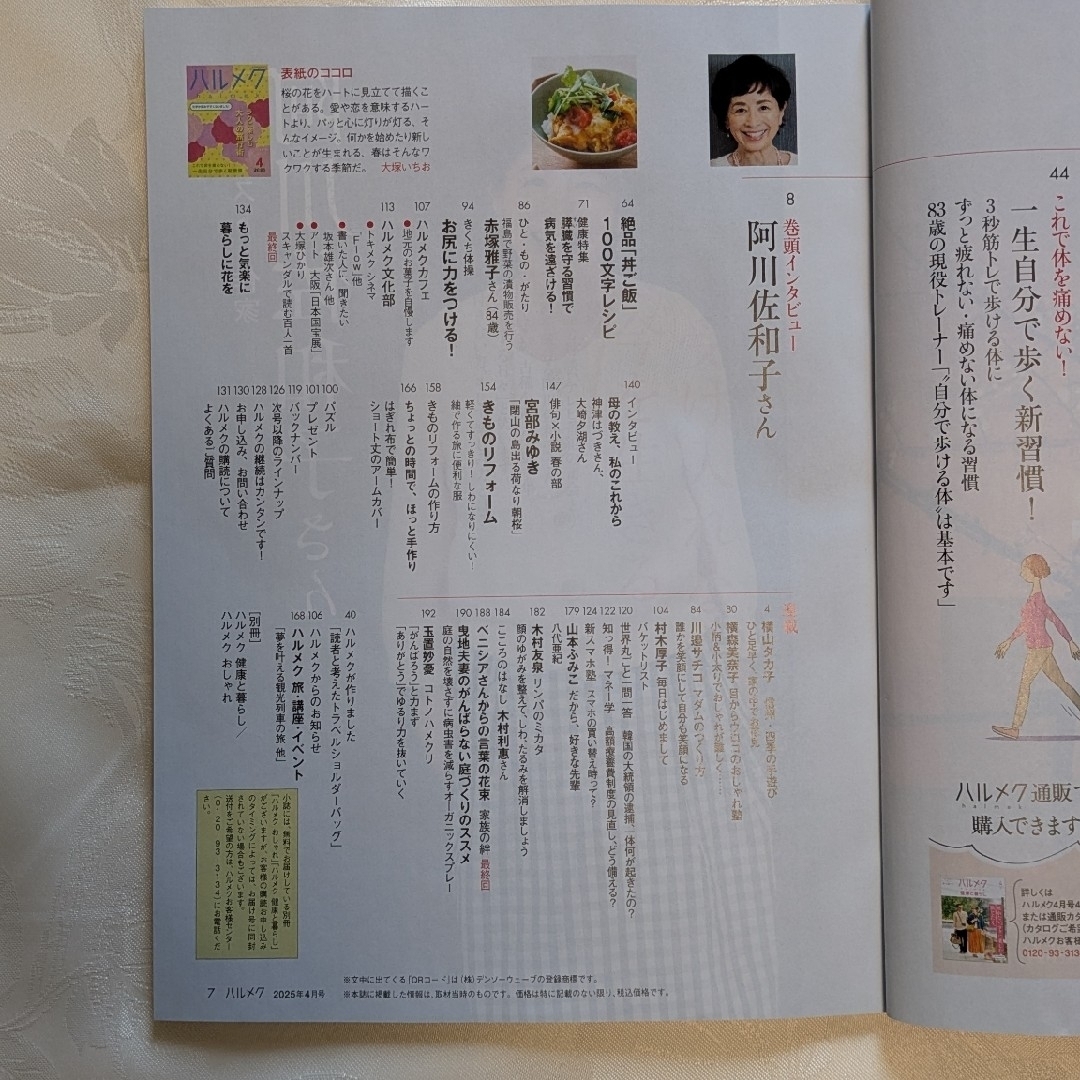 ハルメク
4
表紙のココロ
桜の花をハートに見立てて描くこ
とがある。愛や恋を意味するハー
トより、パッと心に灯りが灯る、そ
んなイメージ。何かを始めたり新し
いことが生まれる、春はそんなワ
クワクする季節だ。 大塚いちお
8
巻頭インタビュー
阿川佐和子さん
64
絶品「丼ご飯」
100文字レシピ
71
健康特集
膵臓を守る習慣で
病気を遠ざける!
86
ひと・もの・がたり
福島で野菜の漬物販売を行う
赤塚雅子さん(84歳)
94
きくち体操
お尻に力をつける!
107
ハルメクカフェ
●地元のお菓子を自慢します
113
ハルメク文化部
●トキメクシネマ
「Flow」他
●書いた人に、聞きたい
坂本雄次さん 他
●アート 大阪「日本国宝展」
●大塚ひかり
スキャンダルで読む百人一首
最終回
134
もっと気楽に
暮らしに花を
140
インタビュー
母の教え、私のこれから
神津はづきさん、
大崎夕湖さん
147
俳句×小説 春の部
宮部みゆき
「閉山の島出る荷なり朝桜」
154
きものリフォーム
軽くてすっきり!しわになりにくい!
紬で作る旅に便利な服
158
きものリフォームの作り方
166
ちょっとの時間で、ほっと手作り
はぎれ布で簡単!
ショート丈のアームカバー
100
パズル
101
プレゼント
119
バックナンバー
126
次号以降のラインナップ
128
ハルメクの継続はカンタンです!
130
お申し込み、お問い合わせ
131
ハルメクの購読について
よくあるご質問
連載
4
横山タカ子 信州・四季の手遊び
ひと足早く、塚の年の花見
80
横森美奈子 目からウロコのおしゃれ塾
小柄&小太りでおしゃれが難しく…
84
川邉サチコ マダムのつくり方
誰かを笑顔にして自分も笑顔になる
104
村木厚子 毎日はじめまして
バケットリスト
120
世界丸ごと一問一答 韓国の大統領の逮捕、一体何が起きたの?
122
知っ得!マネー学 高額療養費制度の見直し、どう備える?
124
新スマホ塾 スマホの買い替え時って?
179
山本ふみこ だから、好きな先輩
八代亜紀
182
木村友泉 リンパのミカタ
顔のゆがみを整えて、しわ、たるみを解消しましょう
184
こころのはなし 木村利惠さん
188
ベニシアさんからの言葉の花束 家族の絆 最終回
190
曳地夫妻のがんばらない庭づくりのススメ
庭の自然を壊さずに病虫害を減らすオーガニックスプレー
192
玉置妙憂 コトノハメクリ
「がんばろう」と力まず
「ありがとう」でゆるり力を抜いていく
40
ハルメクが作りました
「読者と考えたトラベルショルダーバッグ」
106
ハルメクからのお知らせ
168
ハルメク 旅・講座・イベント
「夢を叶える観光列車の旅」他
[別冊]
ハルメク 健康と暮らし/
ハルメク おしゃれ
小誌には、無料でお届けしている別冊
「ハルメク おしゃれ」「ハルメク 健康と暮らし」
がございますが、お客様の購読お申し込み
のタイミングによっては、お届け号に同封
されていない場合もございます。
送付をご希望の方は、ハルメクお客様センター
(0120-93-3134)にお電話くだ
さい。
※文中に出てくる「QRコード」は(株)デンソーウェーブの登録商標です。
※本誌に掲載した情報は、取材当時のものです。価格は特に記載のない限り、税込価格です。
7 ハルメク 2025年4月号
44
これで体を痛めない!
一生自分で歩く新習慣!
3秒筋トレで歩ける体に
ずっと疲れない・痛めない体になる習慣
83歳の現役トレーナー「"自分で歩ける体"は基本です」
ハルメク 通販で
halmek
購入できます
ハルメク
詳しくは
ハルメク4月号
または通販カタ
(カタログご希
ハルメクお客様
0120-93-313